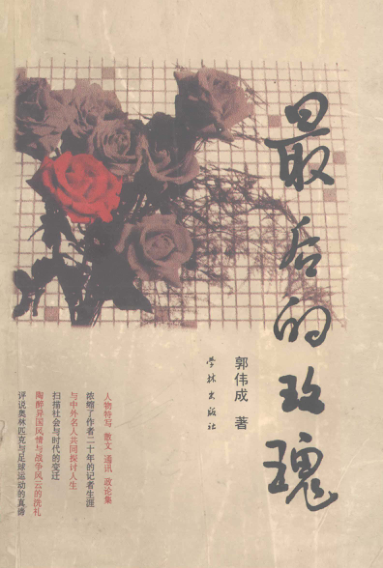 最后的玫瑰
郭伟成 著
学林出版社
人物特写 散文 通讯 政论集
浓缩了作者二十年的记者生涯
与中外名人共同探讨人生
扫描社会与时代的变迁
陶醉异国风情与战争风云的洗礼
评说奥林匹克与足球运动的真谛